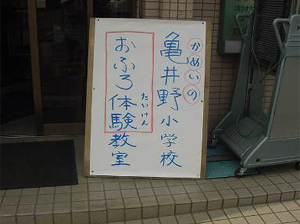 かめいの
亀井野小学校
おふろ体験教室
たいけん